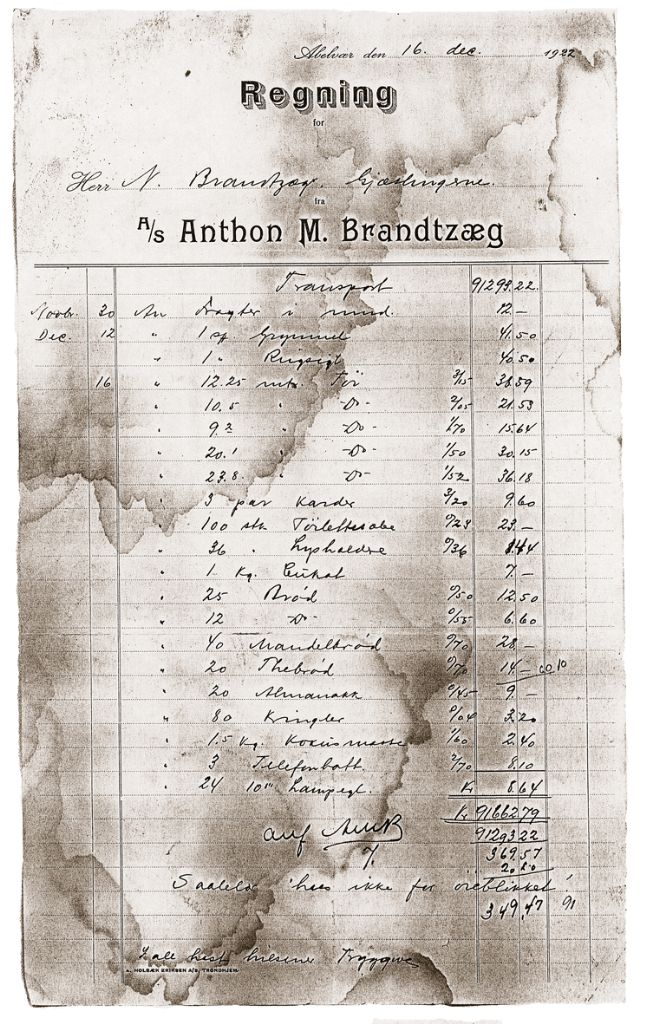 Abelvær den 16. dec. 1922
Regning
for
Herr N. Brandtzæg. Gjæslingerne.
fra
A/S Anthon M. Brandtzæg
Transport 91293.22
Novbr. 30 An Fragter i mnd. 12.–
Dec. 12 " 1 sk Grynmel 41.50
" 1 " Rugsigt 40.50
16 " 12.25 mtr. Tøi 3/15 38.59
" 10.5 " -Do- 2/05 21.53
" 9.2 " -Do- 1/70 15.64
" 20.1 " -Do- 1/50 30.15
" 23.8 " -Do- 1/52 36.18
" 3 par Karder 3/20 9.60
" 100 stk Toiletsæbe 0/23 23.–
" 36 " Lysholdere 0/36
" 1 Kg. Cukat 7.–
" 25 Brød 0/50 12.50
" 12 -Do- 0/55 6.60
" 40 Mandelbrød 0/70 28.–
" 20 Thebrød 0/70 14.– 60.10
" 20 Almanakk 0/45 9.–
" 80 Kringler 0/04 3.20
" 1.5 Kg. Kokusmasse 1/60 2.40
" 3 Telefonbatt. 2/70 8.10
" 24 10''' Lampegl. Kr 8.64
Kr 91662.79
91293.22
369.57
349.47 91
Saalede haes ikke for øieblikket!
I all hast hilsener Tryggve
A. HOLBÆK ERIKSEN A/S, TRONDHJEM.